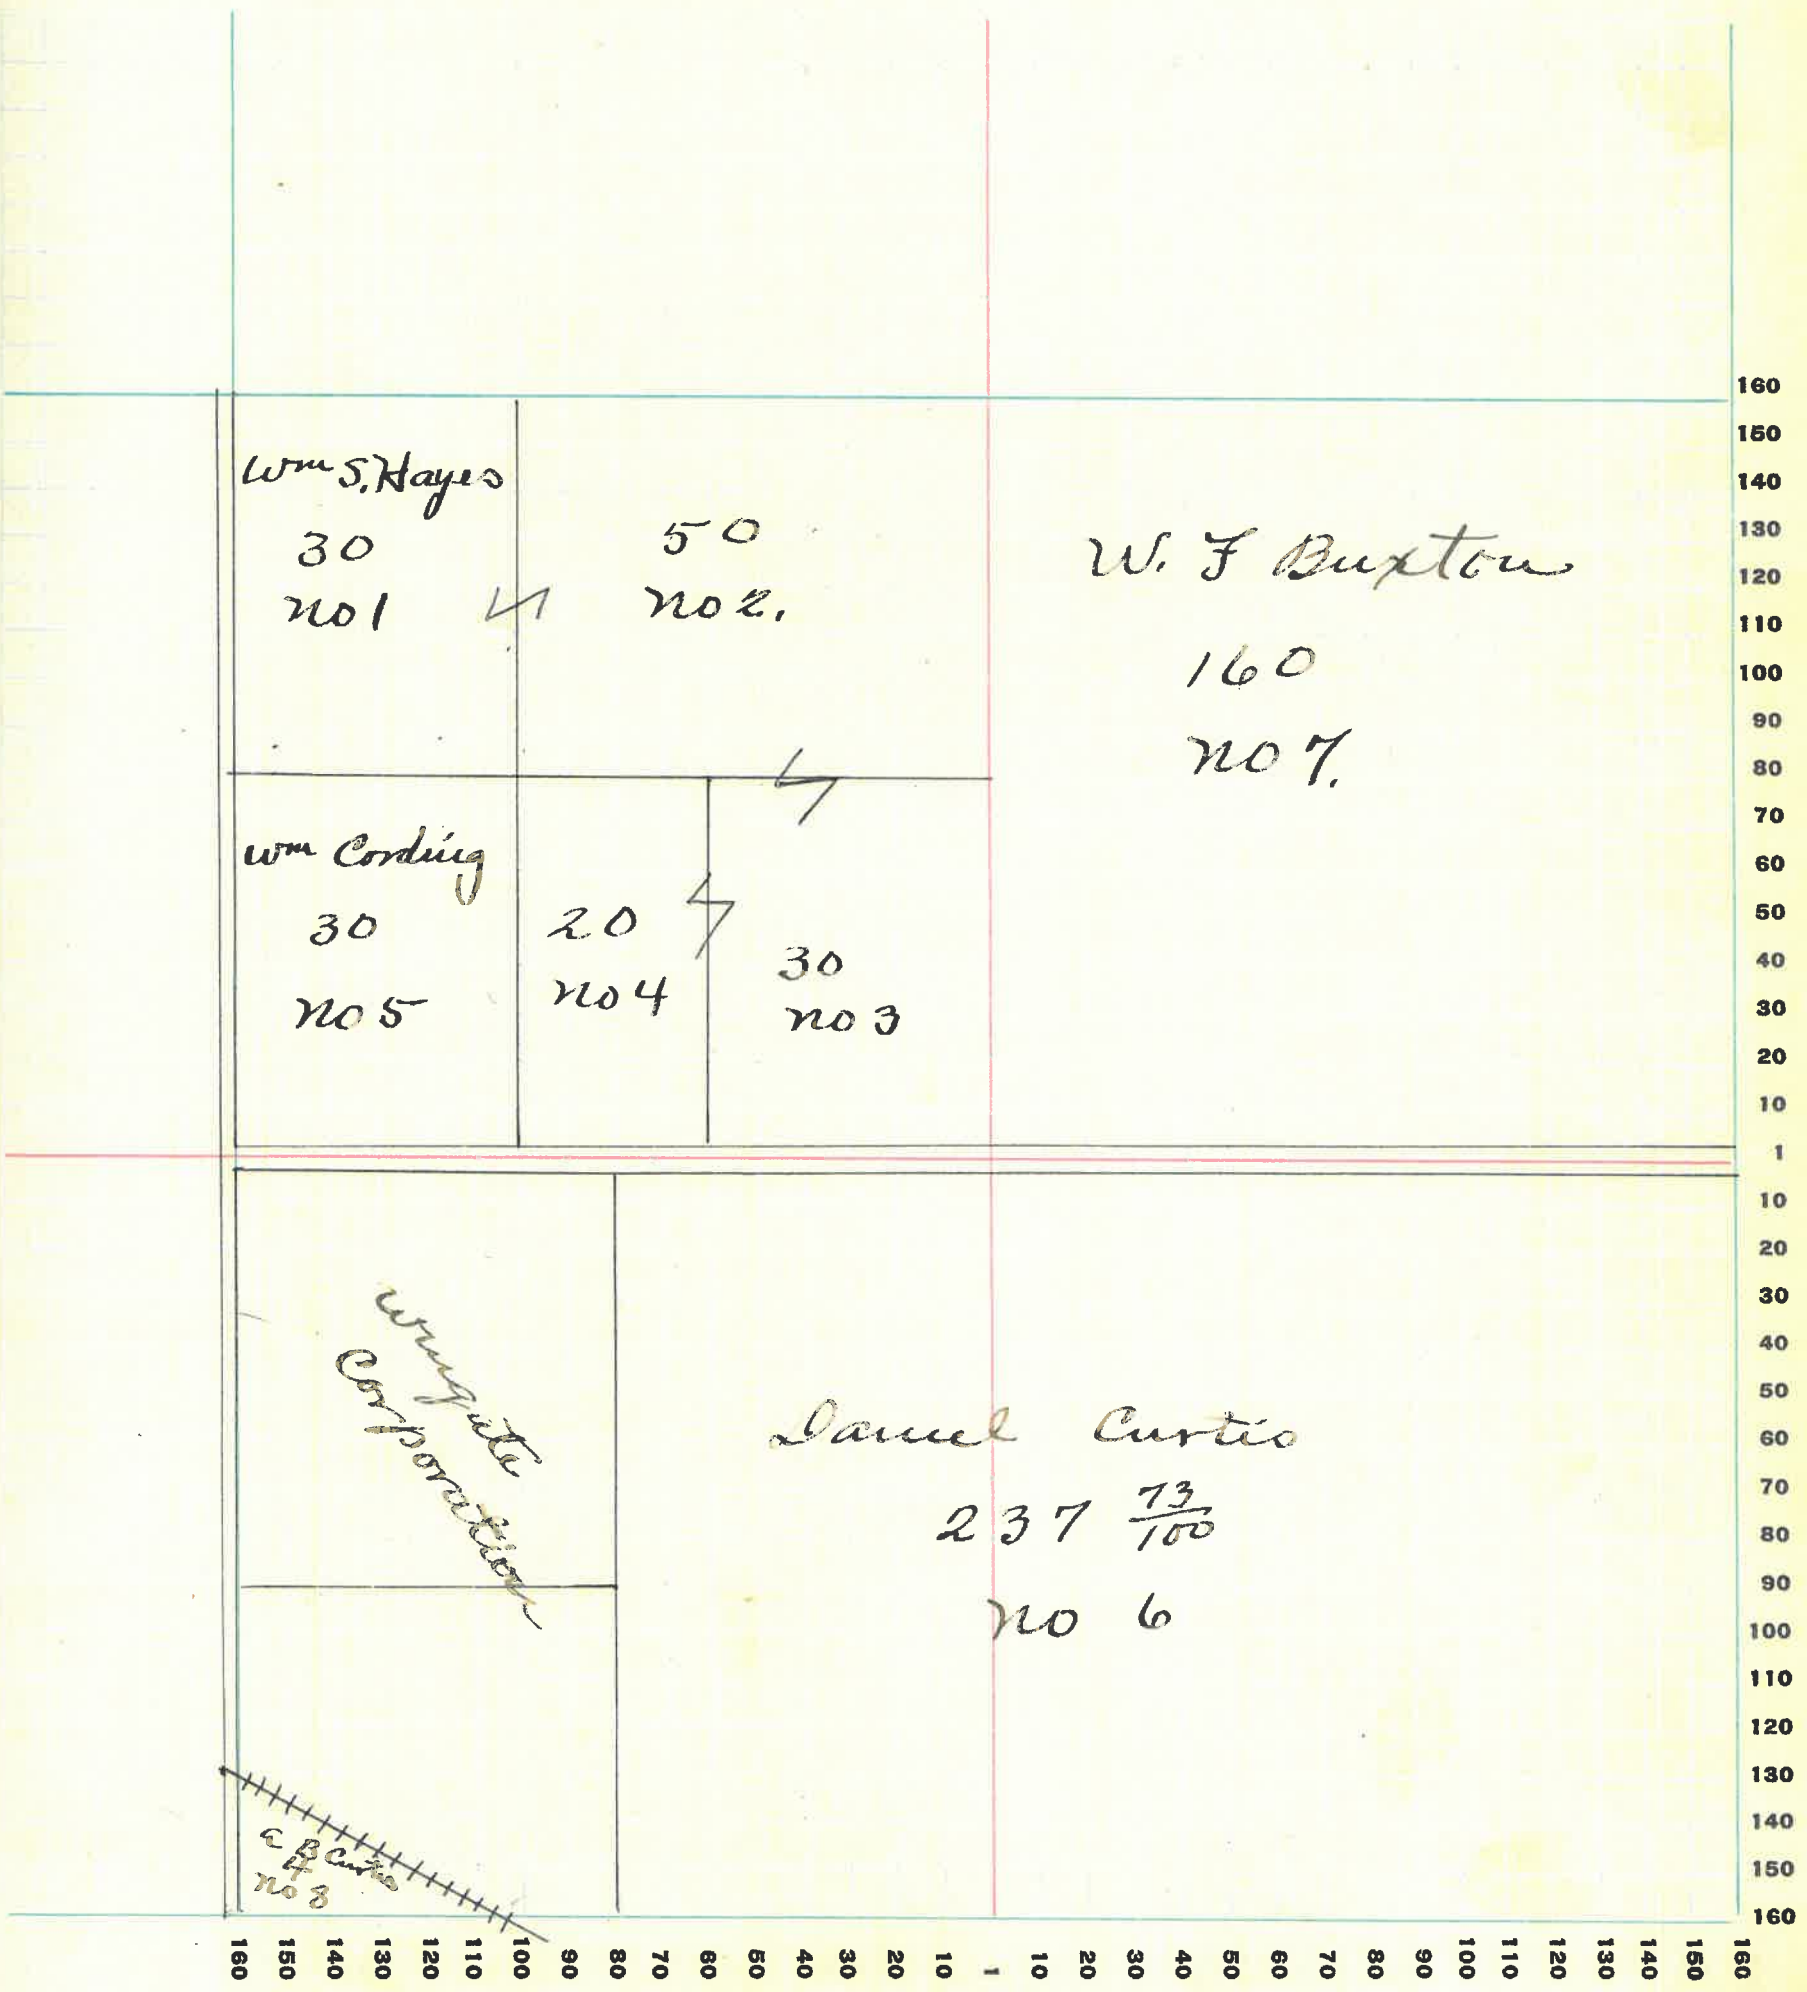 Wm S. Hayes
30
no 1
50
no 2.
W. F Buxton
160
no 7.
Wm Cording
30
no 5
20
no 4
30
no 3
Wingate
Corporation
Daniel Curtis
237 73/100
no 6
a B Curtis
4
no 8
160
150
140
130
120
110
100
90
80
70
60
50
40
30
20
10
1
10
20
30
40
50
60
70
80
90
100
110
120
130
140
150
160
160 150 140 130 120 110 100 90 80 70 60 50 40 30 20 10 1 10 20 30 40 50 60 70 80 90 100 110 120 130 140 150 160